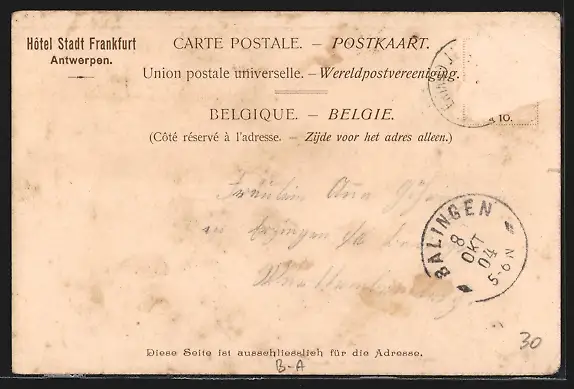 Hôtel Stadt Frankfurt
Antwerpen.
CARTE POSTALE. – POSTKAART.
Union postale universelle. – Wereldpostvereeniging.
BELGIQUE. – BELGIE.
(Côté réservé à l'adresse. – Zijde voor het adres alleen.)
10.
Fräulein
BALINGEN
8
OKT
04
5-6 N
Diese Seite ist ausschliesslich für die Adresse.
B-A
30